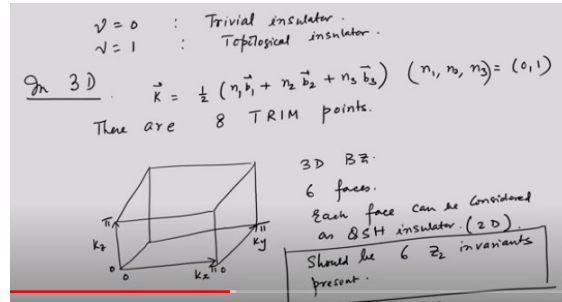 ν = 0 : Trivial insulator.
ν = 1 : Topological insulator.
In 3D. k⃗ = 1/2 (n₁b⃗₁ + n₂b⃗₂ + n₃b⃗₃) (n₁, n₂, n₃) = (0,1)
There are 8 TRIM points.
3D BZ.
6 faces.
Each face can be considered
as QSH insulator. (2D).
Should be 6 Z₂ invariants
present.
π
kz
0
0
kx
π
0
ky
π